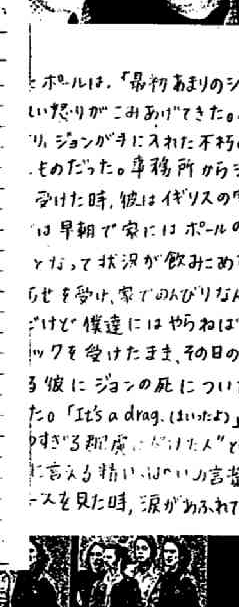 とポールは、「最初あまりのシ
しい怒りがこみあげてきた。
り、ジョンが手に入れた不朽
ものだった。事務所から
受けた時、彼はイギリスの
は早朝で家にはポールの
となって状況が飲みこめ
らせを受け、家でのんびりなん
けど僕達にはやらねば
ックを受けたまま、その日の
る彼にジョンの死につい
た。「It's a drag.（まいったよ）」
すぎる
に言える精いっぱいの言葉
ースを見た時、涙があふれて